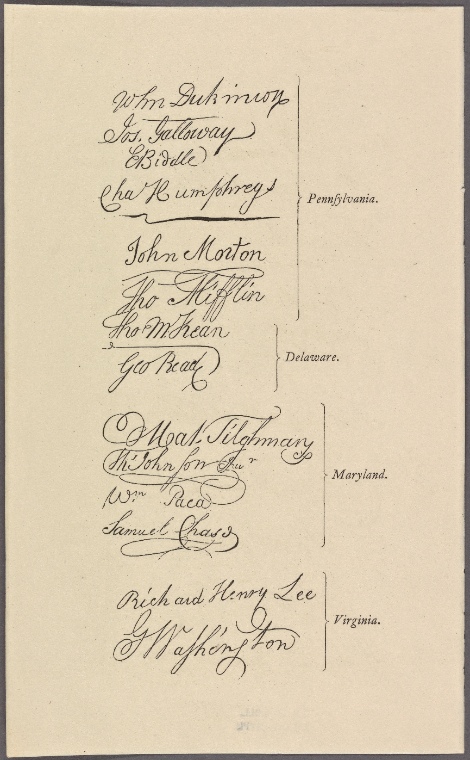 John Dickinson
Jos. Galloway
E Biddle
Cha Humphreys
Pennsylvania.
John Morton
Tho Mifflin
Tho M:Kean
Geo Read
Delaware.
Mat. Tilghman
Th. Johnson Jun r
Wm Paca
Samuel Chase
Maryland.
Richard Henry Lee
G Washington
Virginia.